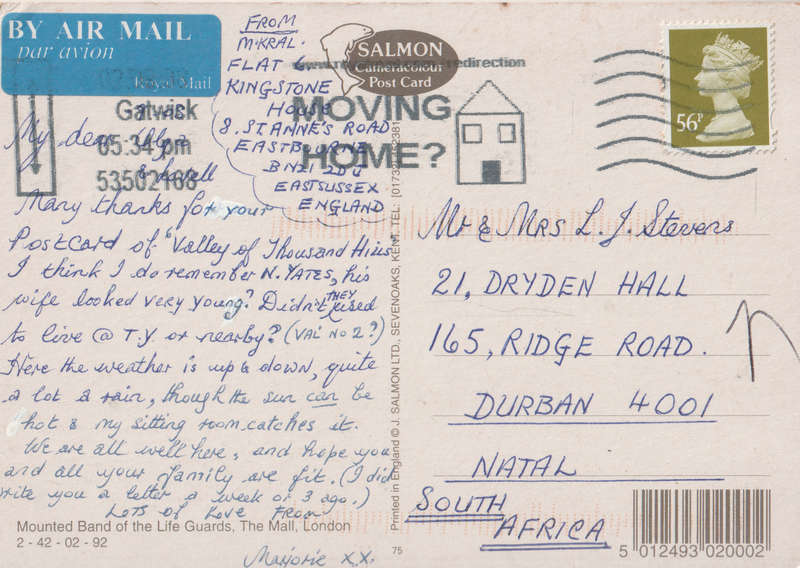 BY AIR MAIL
par avion
Royal Mail
Gatwick
05:34 pm
53502168
FROM
M. KRAL.
FLAT 6
KINGSTONE
House
8. ST ANNE'S ROAD
EASTBOURNE
BN21 2DU
EAST SUSSEX
ENGLAND
SALMON
Cameracolour
Post Card
redirection
MOVING
HOME?
56P
My dear
Many thanks for your
Postcard of "Valley of Thousand Hills
I think I do remember N. YATES, his
wife looked very young? Didn't THEY used
to live @ T.Y. or nearby? (VAL No 2?)
Here the weather is up & down, quite
a lot & rain, though the sun can be
hot & my sitting room catches it.
We are all well here, and hope you
and all your family are fit. (I did
write you a letter a week or 3 ago.)
Lots of Love From
Marjorie x.x.
Mounted Band of the Life Guards, The Mall, London
2 - 42 - 02 - 92
Printed in England © J. SALMON LTD., SEVENOAKS, KENT. TEL:
75
Mr & Mrs L. J. Stevens
21, DRYDEN HALL
165, RIDGE ROAD.
DURBAN 4001
NATAL
SOUTH
AFRICA
5 012493 020002